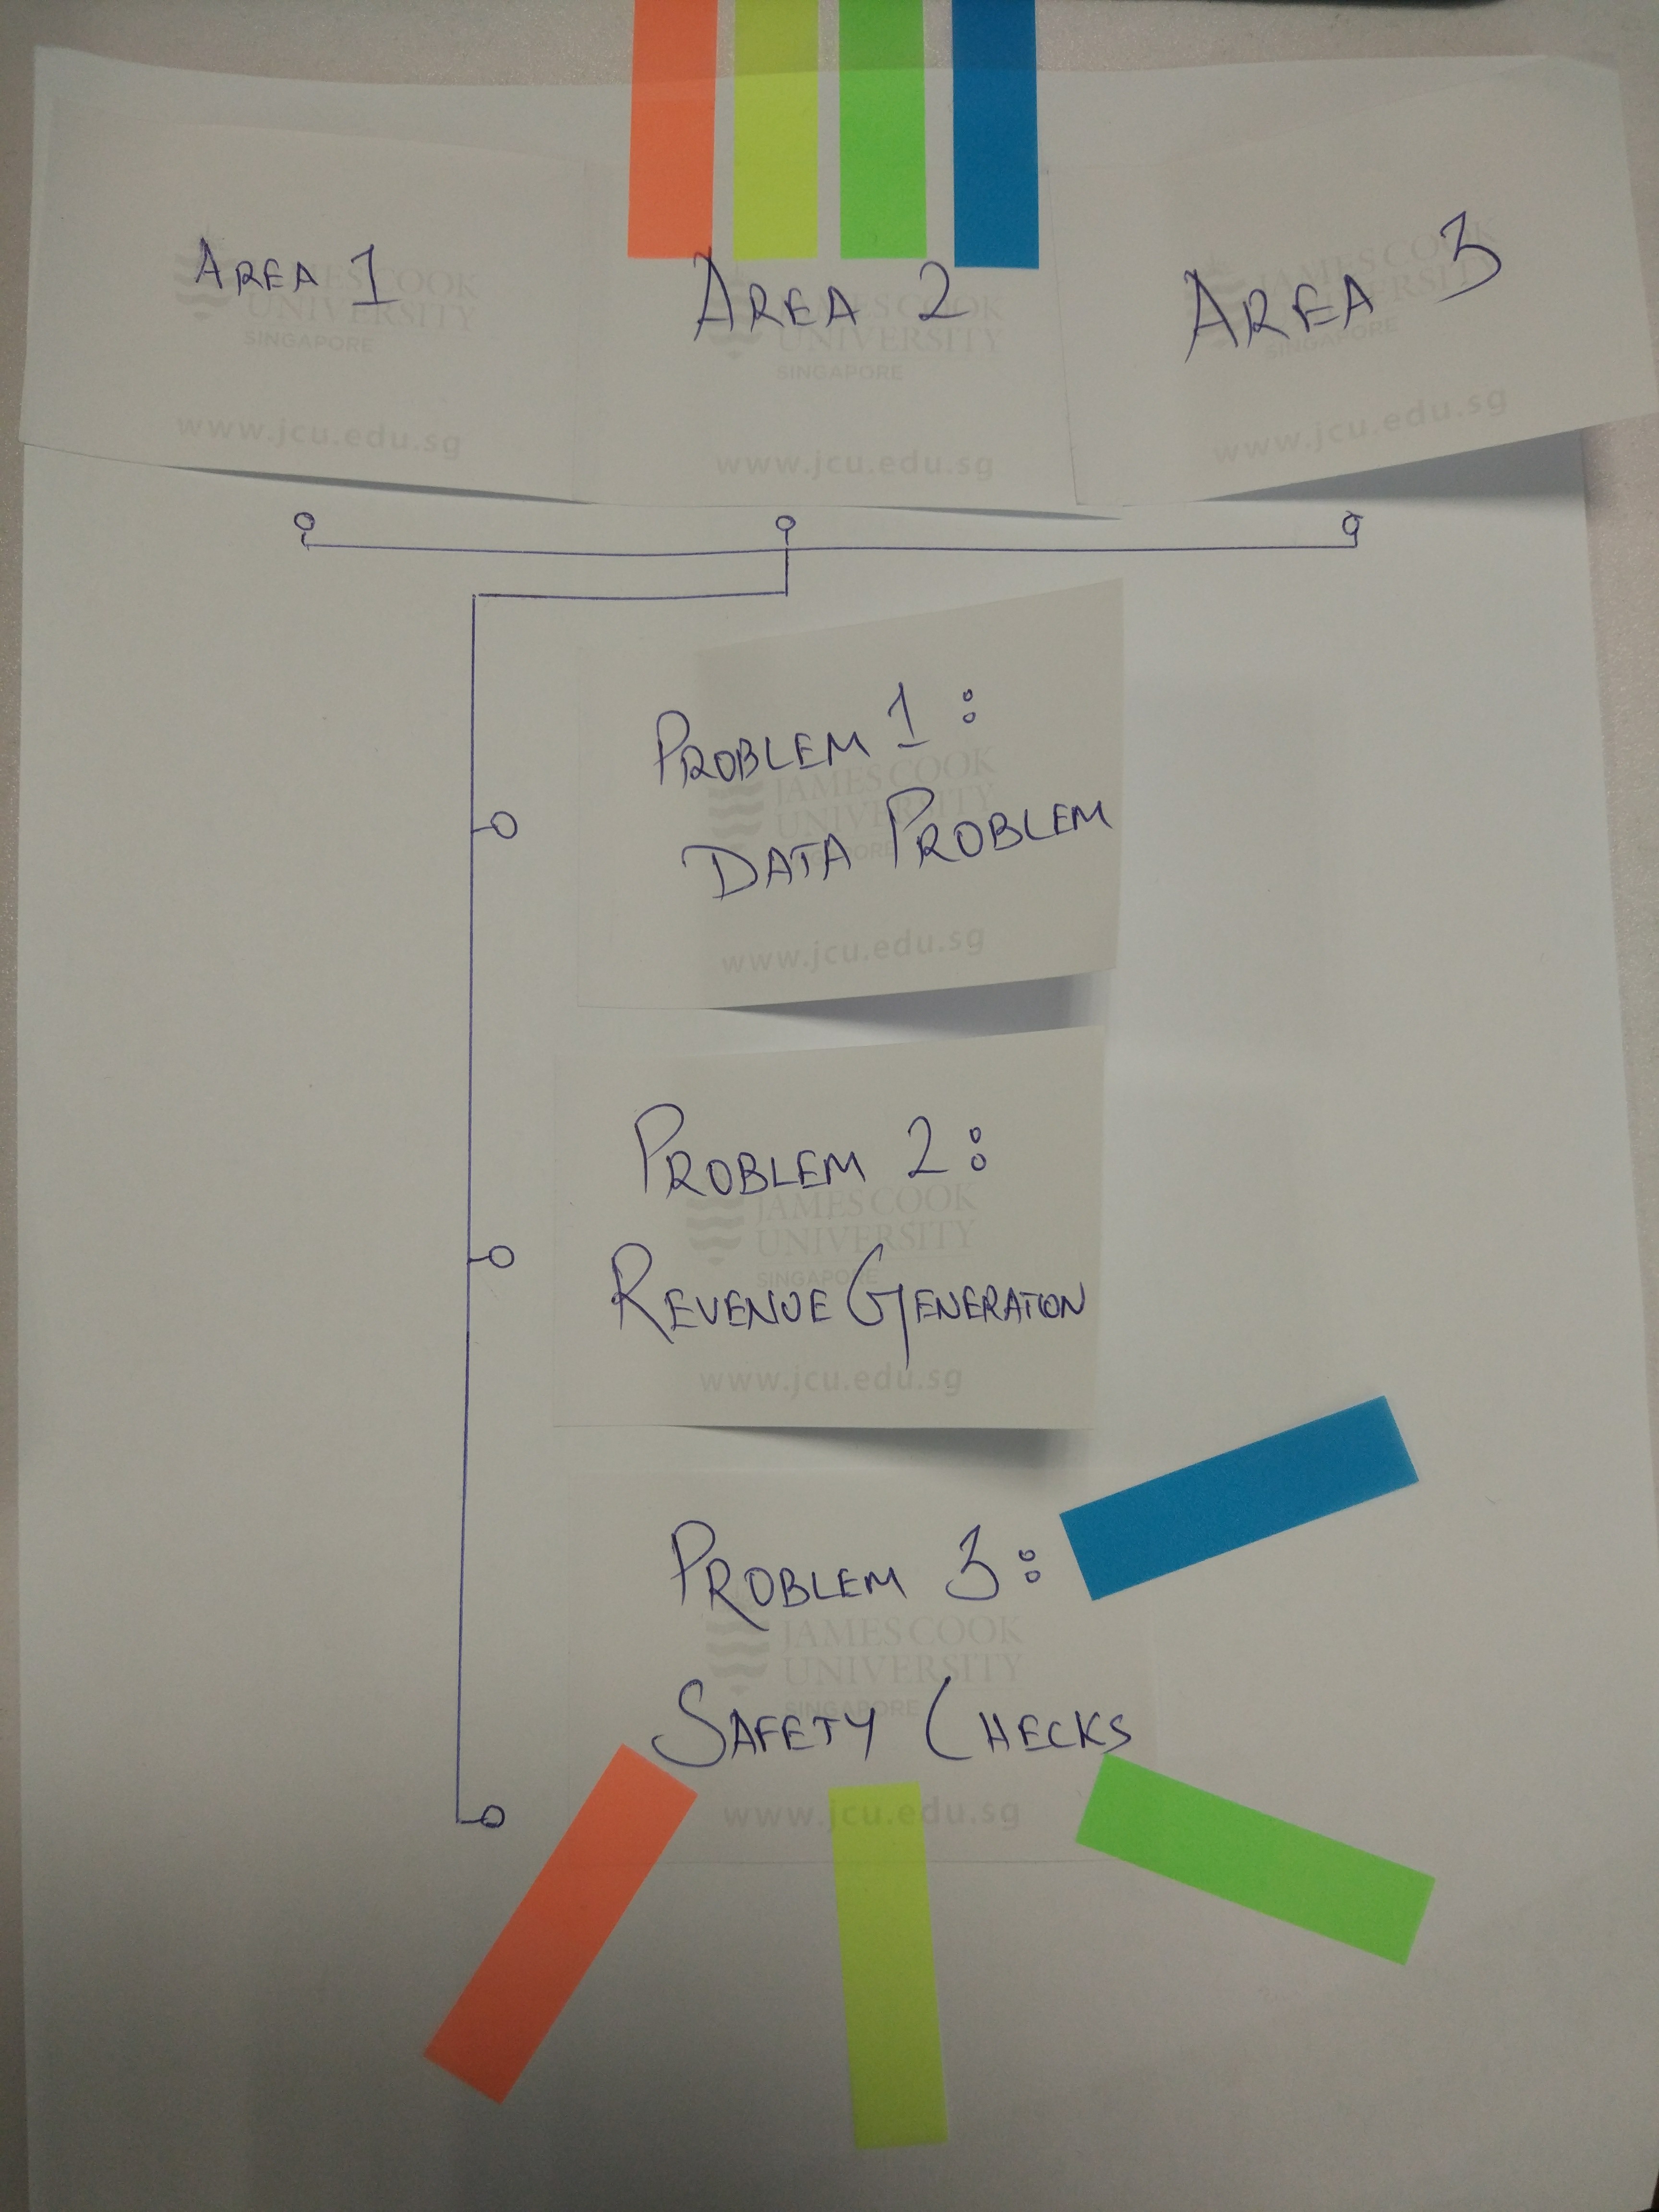 AREA 1
JAMES COOK
UNIVERSITY
SINGAPORE
www.jcu.edu.sg
AREA 2
JAMES COOK
UNIVERSITY
SINGAPORE
www.jcu.edu.sg
AREA 3
JAMES COOK
UNIVERSITY
SINGAPORE
www.jcu.edu.sg
PROBLEM 1:
DATA PROBLEM
JAMES COOK
UNIVERSITY
SINGAPORE
www.jcu.edu.sg
PROBLEM 2:
REVENUE GENERATION
JAMES COOK
UNIVERSITY
SINGAPORE
www.jcu.edu.sg
PROBLEM 3:
SAFETY CHECKS
JAMES COOK
UNIVERSITY
SINGAPORE
www.jcu.edu.sg